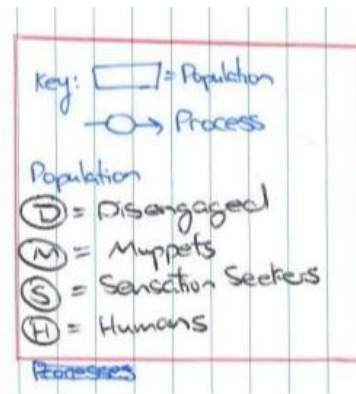 Key: = Population
Process
Population
D = Disengaged
M = Muppets
S = Sensation Seekers
H = Humans
Processes